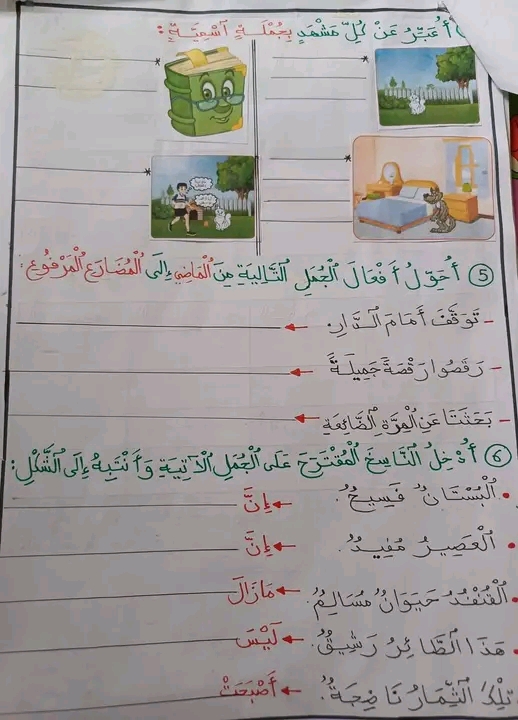 أُعَبِّرُ عَنْ كُلِّ مَشْهَدٍ بِجُمْلَةٍ اَسْمِيَّةٍ :
⑤ أُحَوِّلُ أَفْعَالَ الْجُمَلِ التَّالِيَةِ مِنَ الْمَاضِي إِلَى الْمُضَارَعِ الْمَرْفُوعِ:
- تَوَقَّفَ أَمَامَ الـدَّارِ.
- رَقَصُوا رَقْصَةً جَمِيلَةً
- بَحَثَتَا عَنِ الْهِرَّةِ الضَّائِعَةِ
⑥ أُدْخِلُ النَّاسِخَ الْمُقْتَرَحَ عَلَى الْجُمَلِ الْآتِيَةِ وَأَنْتَبِهُ إِلَى الشَّكْلِ:
• الْبُسْتَانُ فَسِيحٌ. إِنَّ
• الْعَصِيرُ مُفِيدٌ. إِنَّ
• الْقُنْفُدُ حَيَوَانٌ مُسَالِمٌ. مَازَالَ
• هَذَا الطَّائِرُ رَشِيقٌ. لَيْسَ
تِلْكَ الثِّمَارُ نَاضِجَةٌ. أَصْبَحَتْ